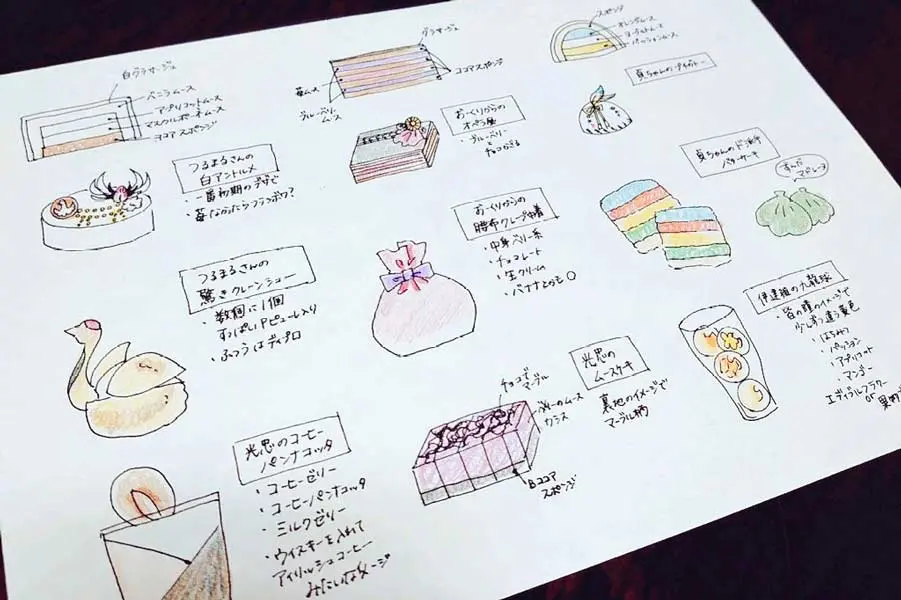 白グラサージュ
バニラムース
アプリコットムース
マスカルポーネムース
ココアスポンジ
つるまるさんの
白アントルメ
・一番初期のデザで
グラサージュ
苺ムース
ブルーベリー
ムース
ココアスポンジ
おーくりからの
オペラ風
・ブルーベリー
と
スポンジ
オレンジムース
ヨーグルトムース
パッションムース
貞ちゃんの
貞ちゃんの
バターケーキ
ずんだ
マドレーヌ
つるまるさんの
驚きクレーンシュー
・数個に1個
すっぱいピューレ入り
・ふつうはディプロ
おーくりからの
腰布クレープ巾着
・中身ベリー系
・チョコレート
・生クリーム
・バナナとかも○
伊達組の九龍球
・皆の瞳のイメージで
少しずつ違う黄色
・はちみつ
・パッション
・アプリコット
・マンゴー
エディブルフラワー
or
光忠の
ムースケーキ
裏地のイメージで
マーブル柄
チョコで
マーブル
カシス
Bココア
スポンジ
光忠のコーヒー
パンナコッタ
・コーヒーゼリー
・コーヒーパンナコッタ
・ミルクゼリー
・ウイスキーを入れて
アイリッシュコーヒー
みたいなイメージ